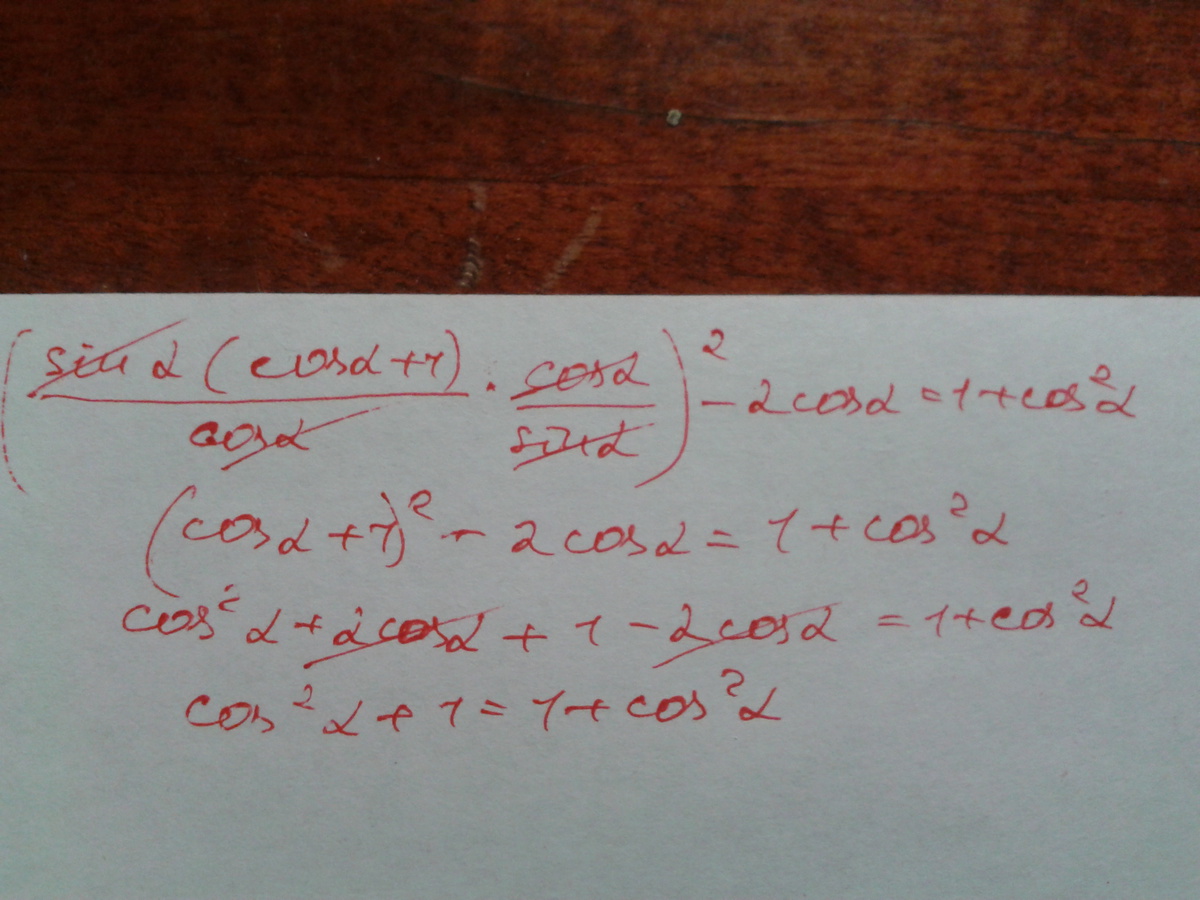 (sin α (cos α + 1) / cos α · cos α / sin α)² − 2 cos α = 1 + cos² α
(cos α + 1)² − 2 cos α = 1 + cos² α
cos² α + 2 cos α + 1 − 2 cos α = 1 + cos² α
cos² α + 1 = 1 + cos² α